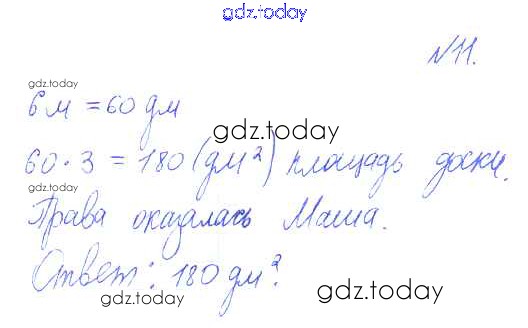 gdz.today
№11.
gdz.today
6 м = 60 дм
gdz.today
60 · 3 = 180 (дм²) площадь доски.
gdz.today
Права оказалась Маша.
Ответ: 180 дм².
gdz.today
gdz.today